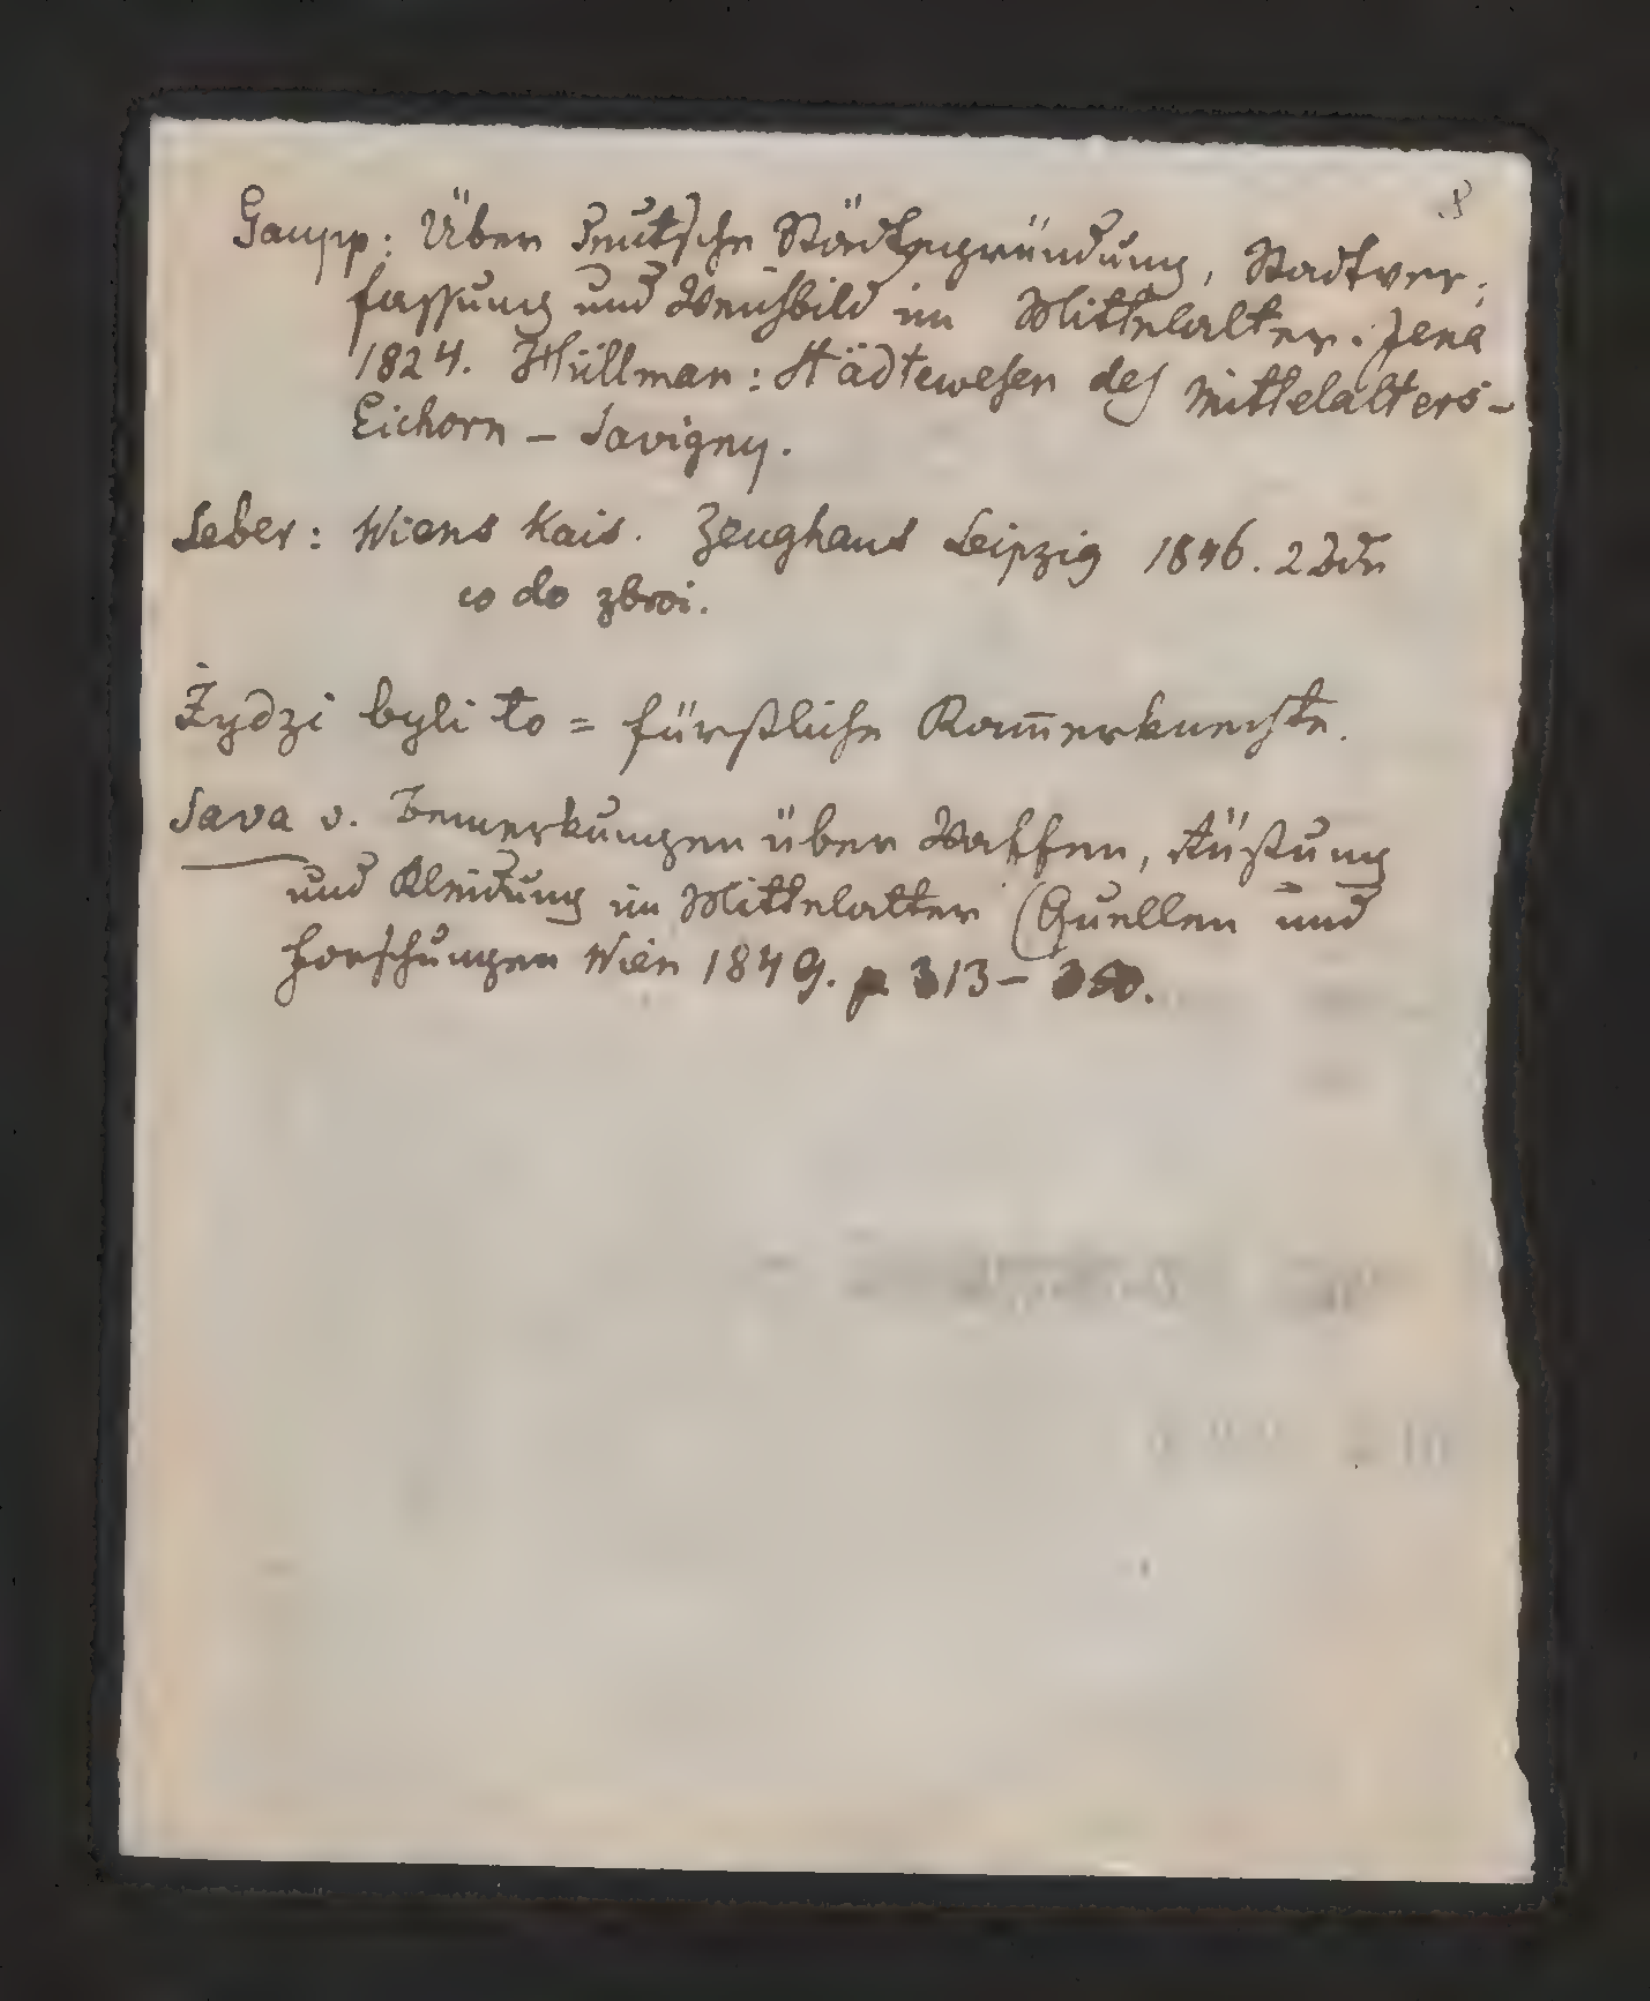 8
Gaupp: Über deutsche Städtegründung, Stadtver:
fassung und Weichbild im Mittelalter. Jena
1824. Hüllman: Städtewesen des Mittelalters –
Eichorn – Savigny.
Leber: Wiens Kais. Zeughaus Leipzig 1846. 2 Bde
co do zbroi.
Żydzi byli to = fürstliche Kam̅erknechte.
Sava v. Bemerkungen über Waffen, Rüstung
und Kleidung im Mittelalter (Quellen und
Forschungen Wien 1849. p 313–